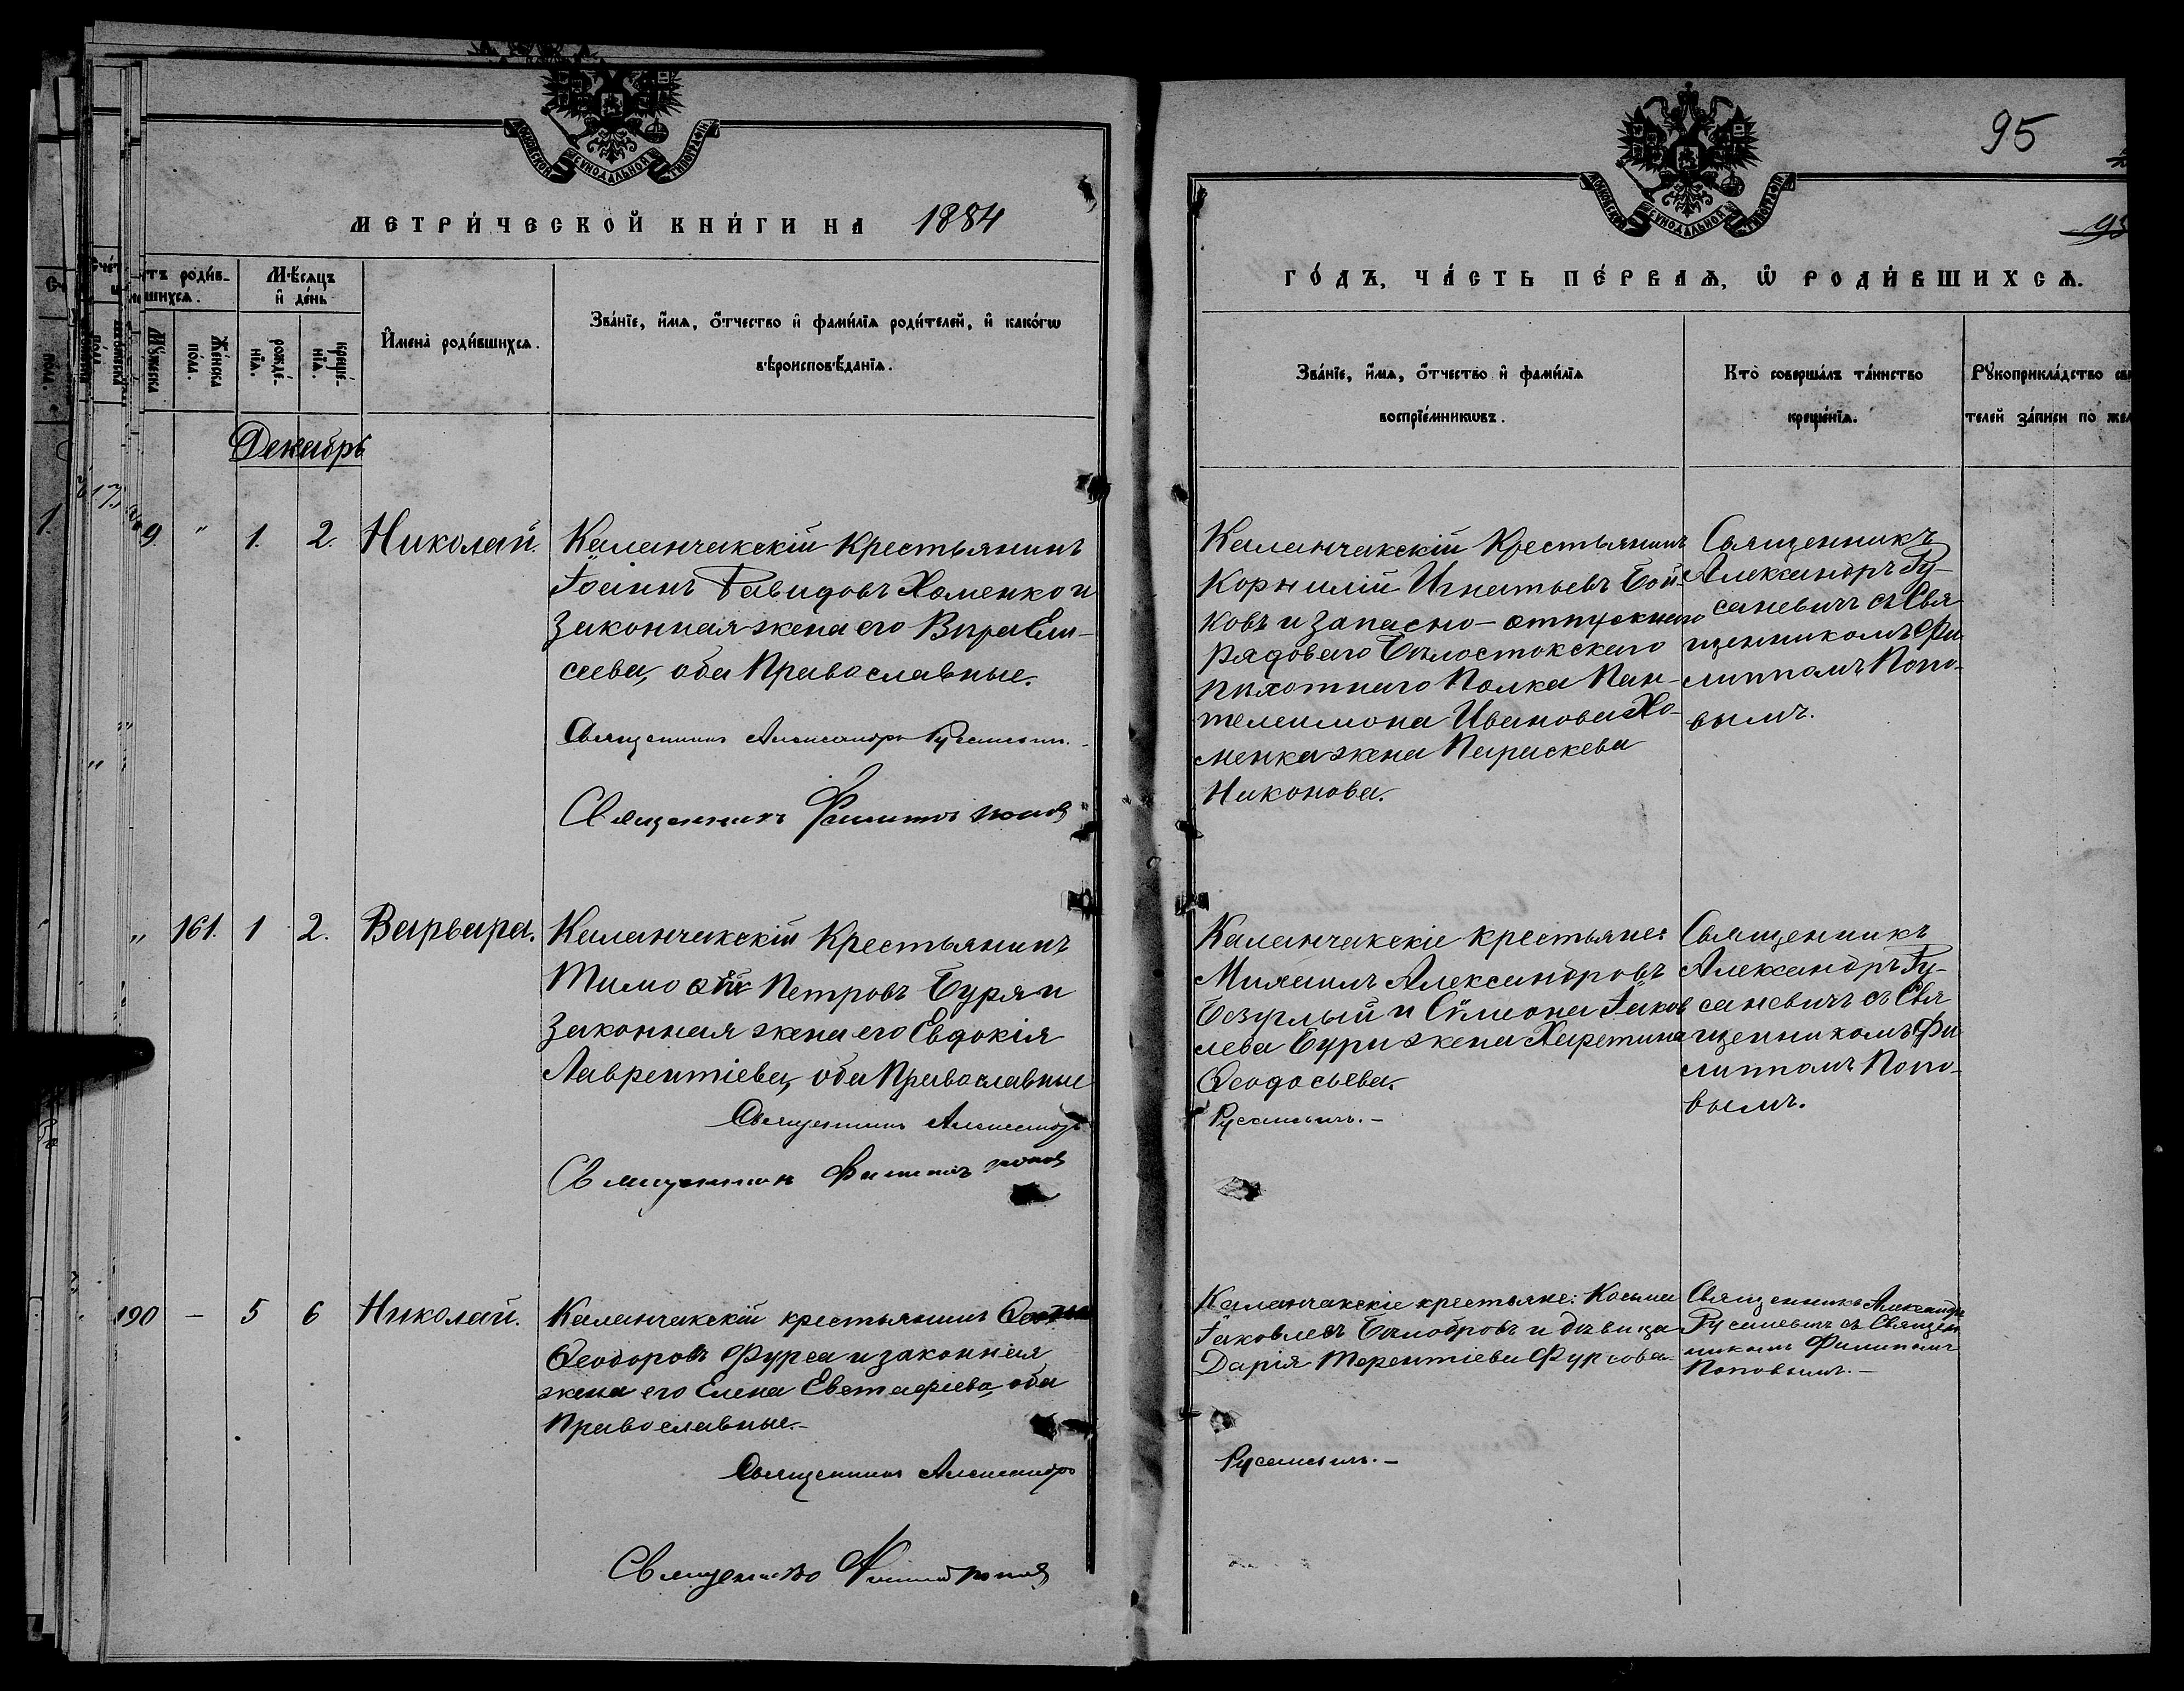 МЕТРИ́ЧЕСКОЙ КНИ́ГИ НА 1884
тъ роди́в-
шихсѧ.
Мꙋ́жеска
Же́нска
по́ла.
Мѣ́сѧцъ
и҆ де́нь
рожде́-
нїѧ.
креще́-
нїѧ.
И҆мена̀ роди́вшихсѧ.
Зва́нїе, и҆́мѧ, ѻ҆́тчество и҆ фами́лїѧ роди́телей, и҆ како́гѡ
вѣроисповѣ́данїѧ.
Декабрь
9. " 1. 2. Николай.
Каланчакскій Крестьянинъ
Іоаннъ Давидовъ Хоменко и
законная жена его Вѣра Ели-
сеева, оба Православные.
Священникъ Александръ Русаневичъ.
Священникъ Филиппъ Поповъ
" 161. 1 2. Варвара.
Каланчакскій Крестьянинъ
Тимоѳей Петровъ Буря и
законная жена его Евдокія
Лаврентіева, оба Православные
Священникъ Александръ
Священникъ Филиппъ Поповъ
190 — 5 6 Николай.
Каланчакскій крестьянинъ
Ѳеодоровъ Фурса и законная
жена его Елена Евстафіева, оба
Православные.-
Священникъ Александръ
Священникъ Филиппъ Поповъ
95
МОСКОВСКОЙ СѴНОДАЛЬНОЙ ТИПОГРАФІИ
ГО́ДЪ, ЧА́СТЬ ПЕ́РВАѦ, Ѡ҆ РОДИ́ВШИХСѦ.
Зва́нїе, и҆́мѧ, ѻ҆́тчество и҆ фами́лїѧ
воспрїе́мникѡвъ.
Кто̀ соверша́лъ та́инство
креще́нїѧ.
Рꙋкоприкла́дство сви
телей за́писи по жел
Каланчакскій Крестьянинъ
Корнилій Игнатьевъ Бой-
ковъ и запасно-отпускнаго
рядоваго Бѣлостокскаго
пѣхотнаго Полка Пан-
телеимона Иванова Хо-
менка жена Параскева
Никонова.
Священникъ
Александръ Ру-
саневичъ съ Свя
щенникомъ Фи-
липпомъ Попо-
вымъ.
Каланчакскіе крестьяне:
Михаилъ Александровъ
Безуглый и Сѷмеона Іаков
лева Бури жена Харетина
Ѳеодосьева.
Русаневичъ.-
Священникъ
Александръ Ру-
саневичъ съ Свя
щенникомъ Фи
липпомъ Попо-
вымъ.
Каланчакскіе крестьяне: Косьма
Іаковлевъ Бѣлобровъ и дѣвица
Дарія Терентіева Фурсова.
Русаневичъ.-
Священникъ Александръ
Русаневичъ съ Священ
никомъ Филиппомъ
Поповымъ.-